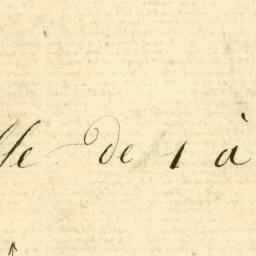 lle de 1 à